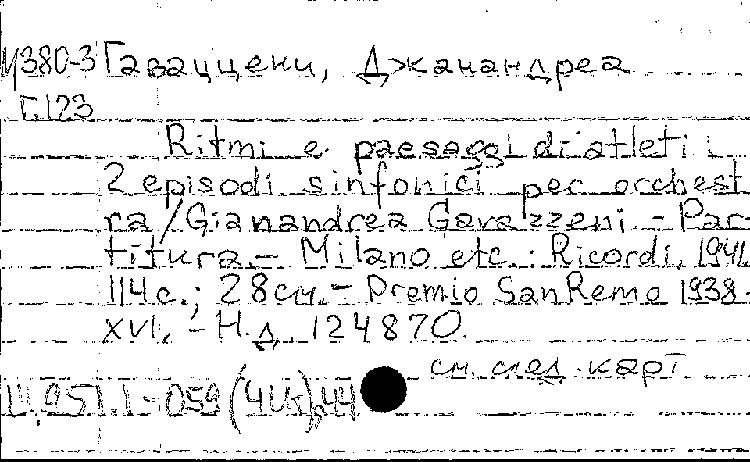 И380-3 Гаваццени, Джанандреа
Г.123
Ritmi e paesaggi di atleti :
2 episodi sinfonici per orchest
ra / Gianandrea Gavazzeni. - Par
titura. - Milano etc. : Ricordi, 1941.
114 с.; 28 см. - Premio San Remo 1938 -
XVI. - Н.Д. 124870.
см. след. карт